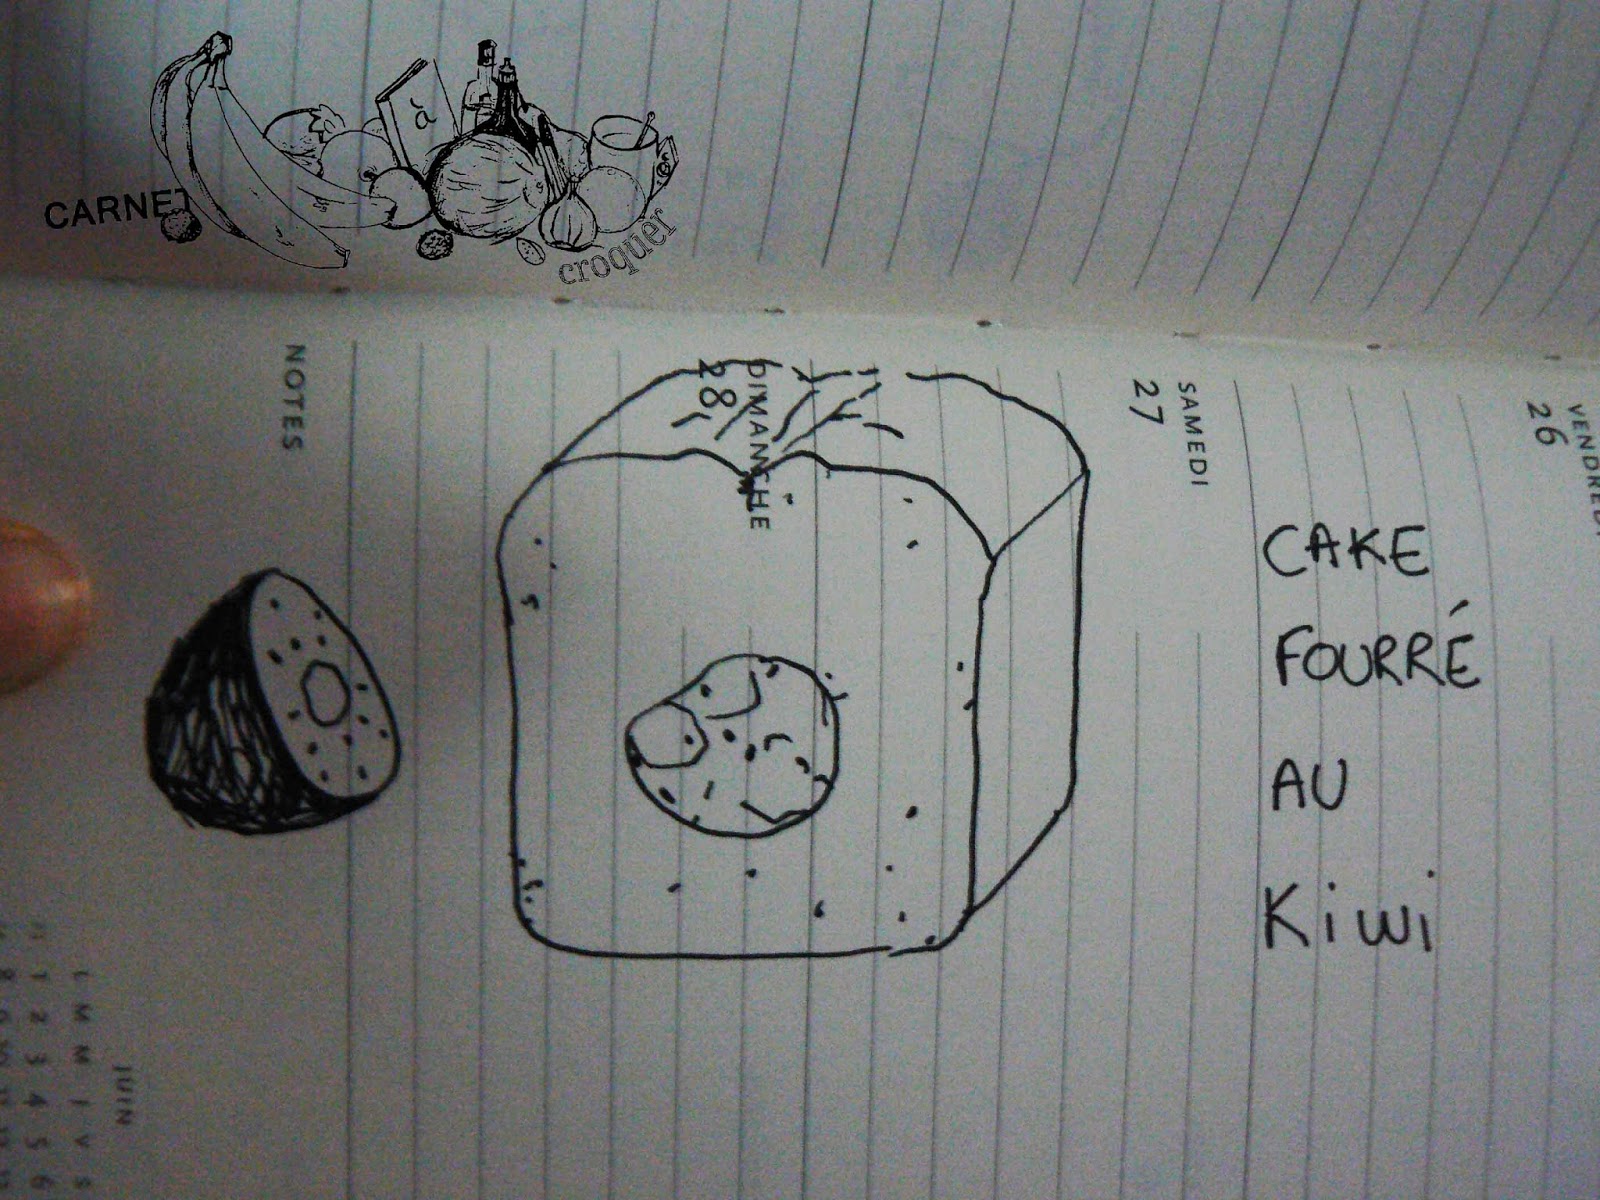 CARNET
à
croquer
NOTES
DIMANCHE
28
SAMEDI
27
26
CAKE
FOURRÉ
AU
Kiwi
JUIN
L M M J V S
1 2 3 4 5 6